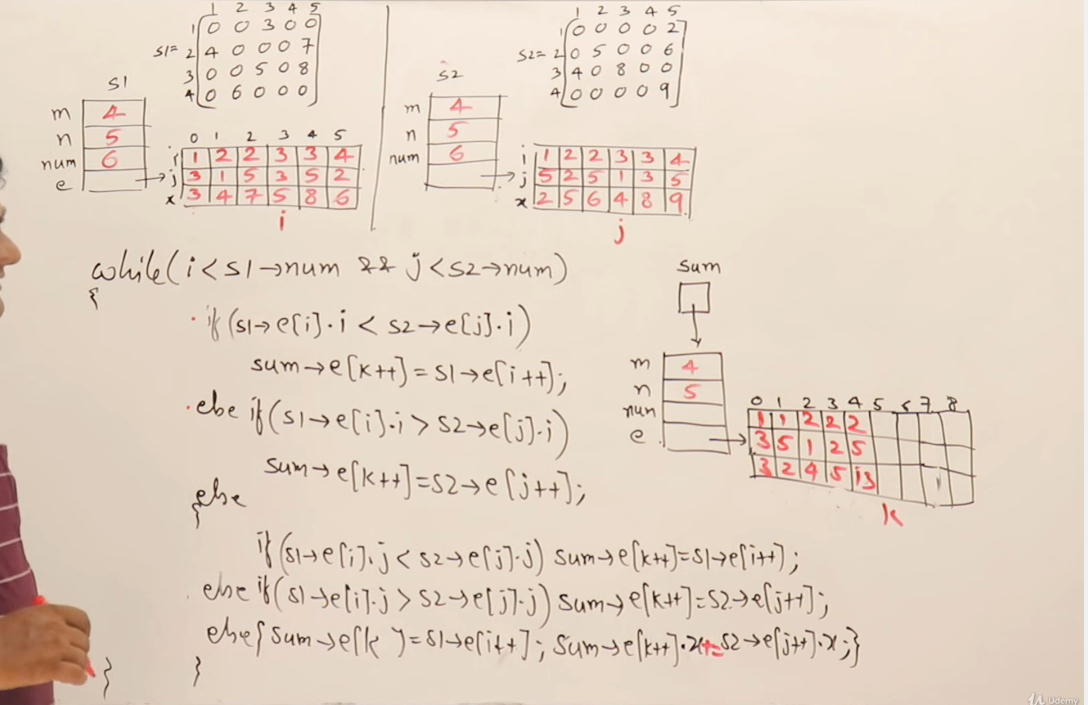 1 2 3 4 5
1 0 0 3 0 0
S1= 2 4 0 0 0 7
3 0 0 5 0 8
4 0 6 0 0 0
S1
m 4
n 5
num 6
e
0 1 2 3 4 5
i 1 2 2 3 3 4
j 3 1 5 3 5 2
x 3 4 7 5 8 6
i
1 2 3 4 5
1 0 0 0 0 2
S2= 2 0 5 0 0 6
3 4 0 8 0 0
4 0 0 0 0 9
S2
m 4
n 5
num 6
i 1 2 2 3 3 4
j 5 2 5 1 3 5
x 2 5 6 4 8 9
j
while(i<s1→num && j<s2→num)
{
if(s1→e[i].i < s2→e[j].i)
sum→e[k++]=s1→e[i++];
else if(s1→e[i].i > s2→e[j].i)
sum→e[k++]=s2→e[j++];
else
{
if(s1→e[i].j < s2→e[j].j) sum→e[k++]=s1→e[i++];
else if(s1→e[i].j > s2→e[j].j) sum→e[k++]=s2→e[j++];
else{sum→e[k ]=s1→e[i++]; sum→e[k++].x+=s2→e[j++].x;}
}
}
sum
m 4
n 5
num
e
0 1 2 3 4 5 6 7 8
1 1 2 2 2
3 5 1 2 5
3 2 4 5 13
k
Udemy